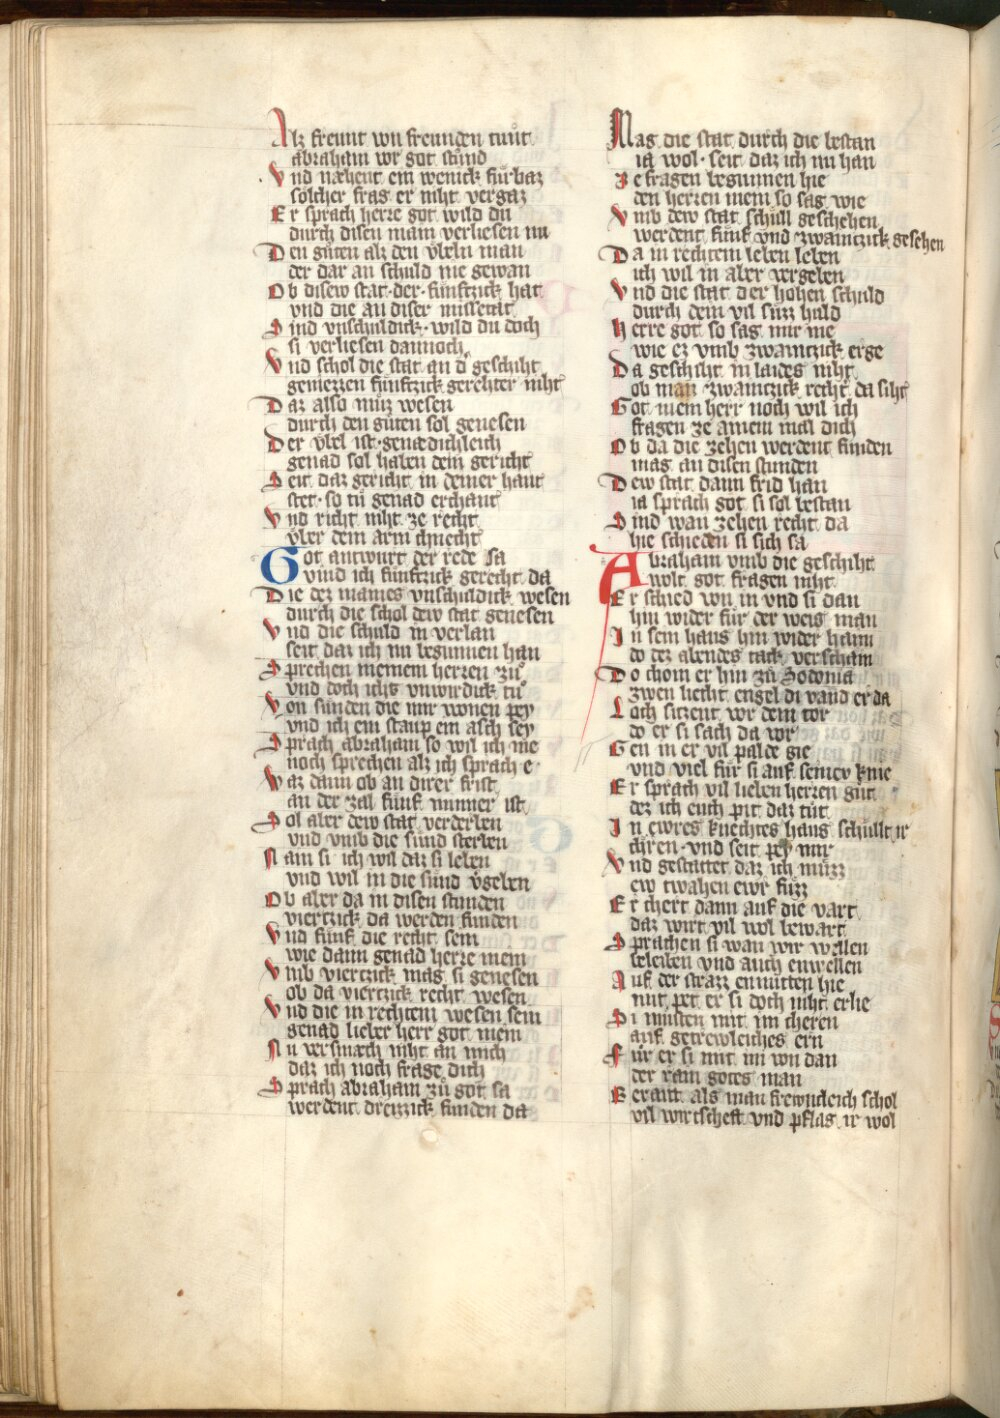 Alz freunt von freunden tuͦnt
abraham vor got stuͦnd
Vnd næhent ein wenick fuͤrbaz
soͤlcher frag er niht vergaz
Er sprach herre got wild du
durch disen main verliesen nu
Den guͤten alz den vͤbeln man
der dar an schuld nie gewan
Ob disew stat der fuͤnftzick hat
vnd die an diser missetat
Sind vnschuldick wild du doch
si verliesen dannoch
Vnd schol die stat an dˀ geschiht
geniezzen fuͤnftzick gerehter niht
Daz also muͤz wesen
durch den guͤten sol genesen
Der vͤbel ist genædichleich
genad sol haben dein gericht
Seit daz gericht in deiner hant
stet so tuͤ genad erchant
Vnd richt niht ze recht
vͤber dem arm chnecht
Got antwurt der rede sa
vind ich fuͤnftzick gerecht da
Die dez maines vnschuldick wesen
durch die schol dew stat genesen
Vnd die schuld in verlan
seit daz ich nu begunnen han
Sprechen meinem herren zuͦ
vnd doch ichs vnwirdick tuͦ
Von suͤnden die mir wonen pey
vnd ich ein staup ein asch sey
Sprach abraham so wil ich me
noch sprechen alz ich sprach e
Waz dann ob an direr frist
an der zal fuͤnf minner ist
Sol aber dew stat verderben
vnd vmb die suͤnd sterben
Nain si ich wil daz si leben
vnd wil in die suͤnd vˀgeben
Ob aber da in disen stunden
viertzick da werden funden
Vnd fuͤnf die recht sein
wie dann genad herre mein
Vmb viertzick mag si genesen
ob da viertzick recht wesen
Vnd die in rechtem wesen sein
genad lieber herr got mein
Nu versmæch niht an mich
daz ich noch frage dich
Sprach abraham zuͦ got sa
werdent dreizzick funden da
Mag die stat durch die bestan
ia wol seit daz ich nu han
Ze fragen begunnen hie
den herren mein so sag wie
Vmb dew stat schuͤll geschehen
werdent fuͤnf vnd zwaintzick gesehen
Da in rechtem leben leben
ich wil in aber vergeben
Vnd die stat der hohen schuld
durch dein vil suͤzz huld
Herre got so sag mir me
wie ez vmb zwaintzick erge
Da geschiht in laides niht
ob man zwaintzick recht da siht
Got mein herr noch wil ich
fragen ze ainem mal dich
Ob da die zehen werdent funden
mag an disen stunden
Dew stat dann frid han
ia sprach got si sol bestan
Sind wan zehen recht da
hie schieden si sich sa
Abraham vmb die geschiht
wolt got fragen niht
Er schied von in vnd si dan
hin wider fuͤr der weis man
In sein haus hin wider haim
do dez abendes tack verschain
Do chom er hin zuͦ Sodoma
zwen liecht engel di vand er da
Loth sitzent vor dem tor
do er si sach da vor
Gen in er vil palde gie
vnd viel fuͤr si auf seinew knie
Er sprach vil lieben herren guͤt
dez ich euch pit daz tuͤt
In ewres knechtes haus schuͤllt ir
chern vnd seit pey mir
Vnd gestattet daz ich muͤzz
ew twahen ewr fuͤzz
Er chert dann auf die vart
daz wirt vil wol bewart
Sprachen si wan wir wellen
beleiben vnd auch enwellen
Auf der strazz enmitten hie
nut pet er si doch niht erlie
Si musten mit im cheren
auf getrewleiches ern
Fuͤr er si mit im von dan
der rain gotes man
Berait als man frewntleich schol
vil wirtscheft vnd pflag ir wol